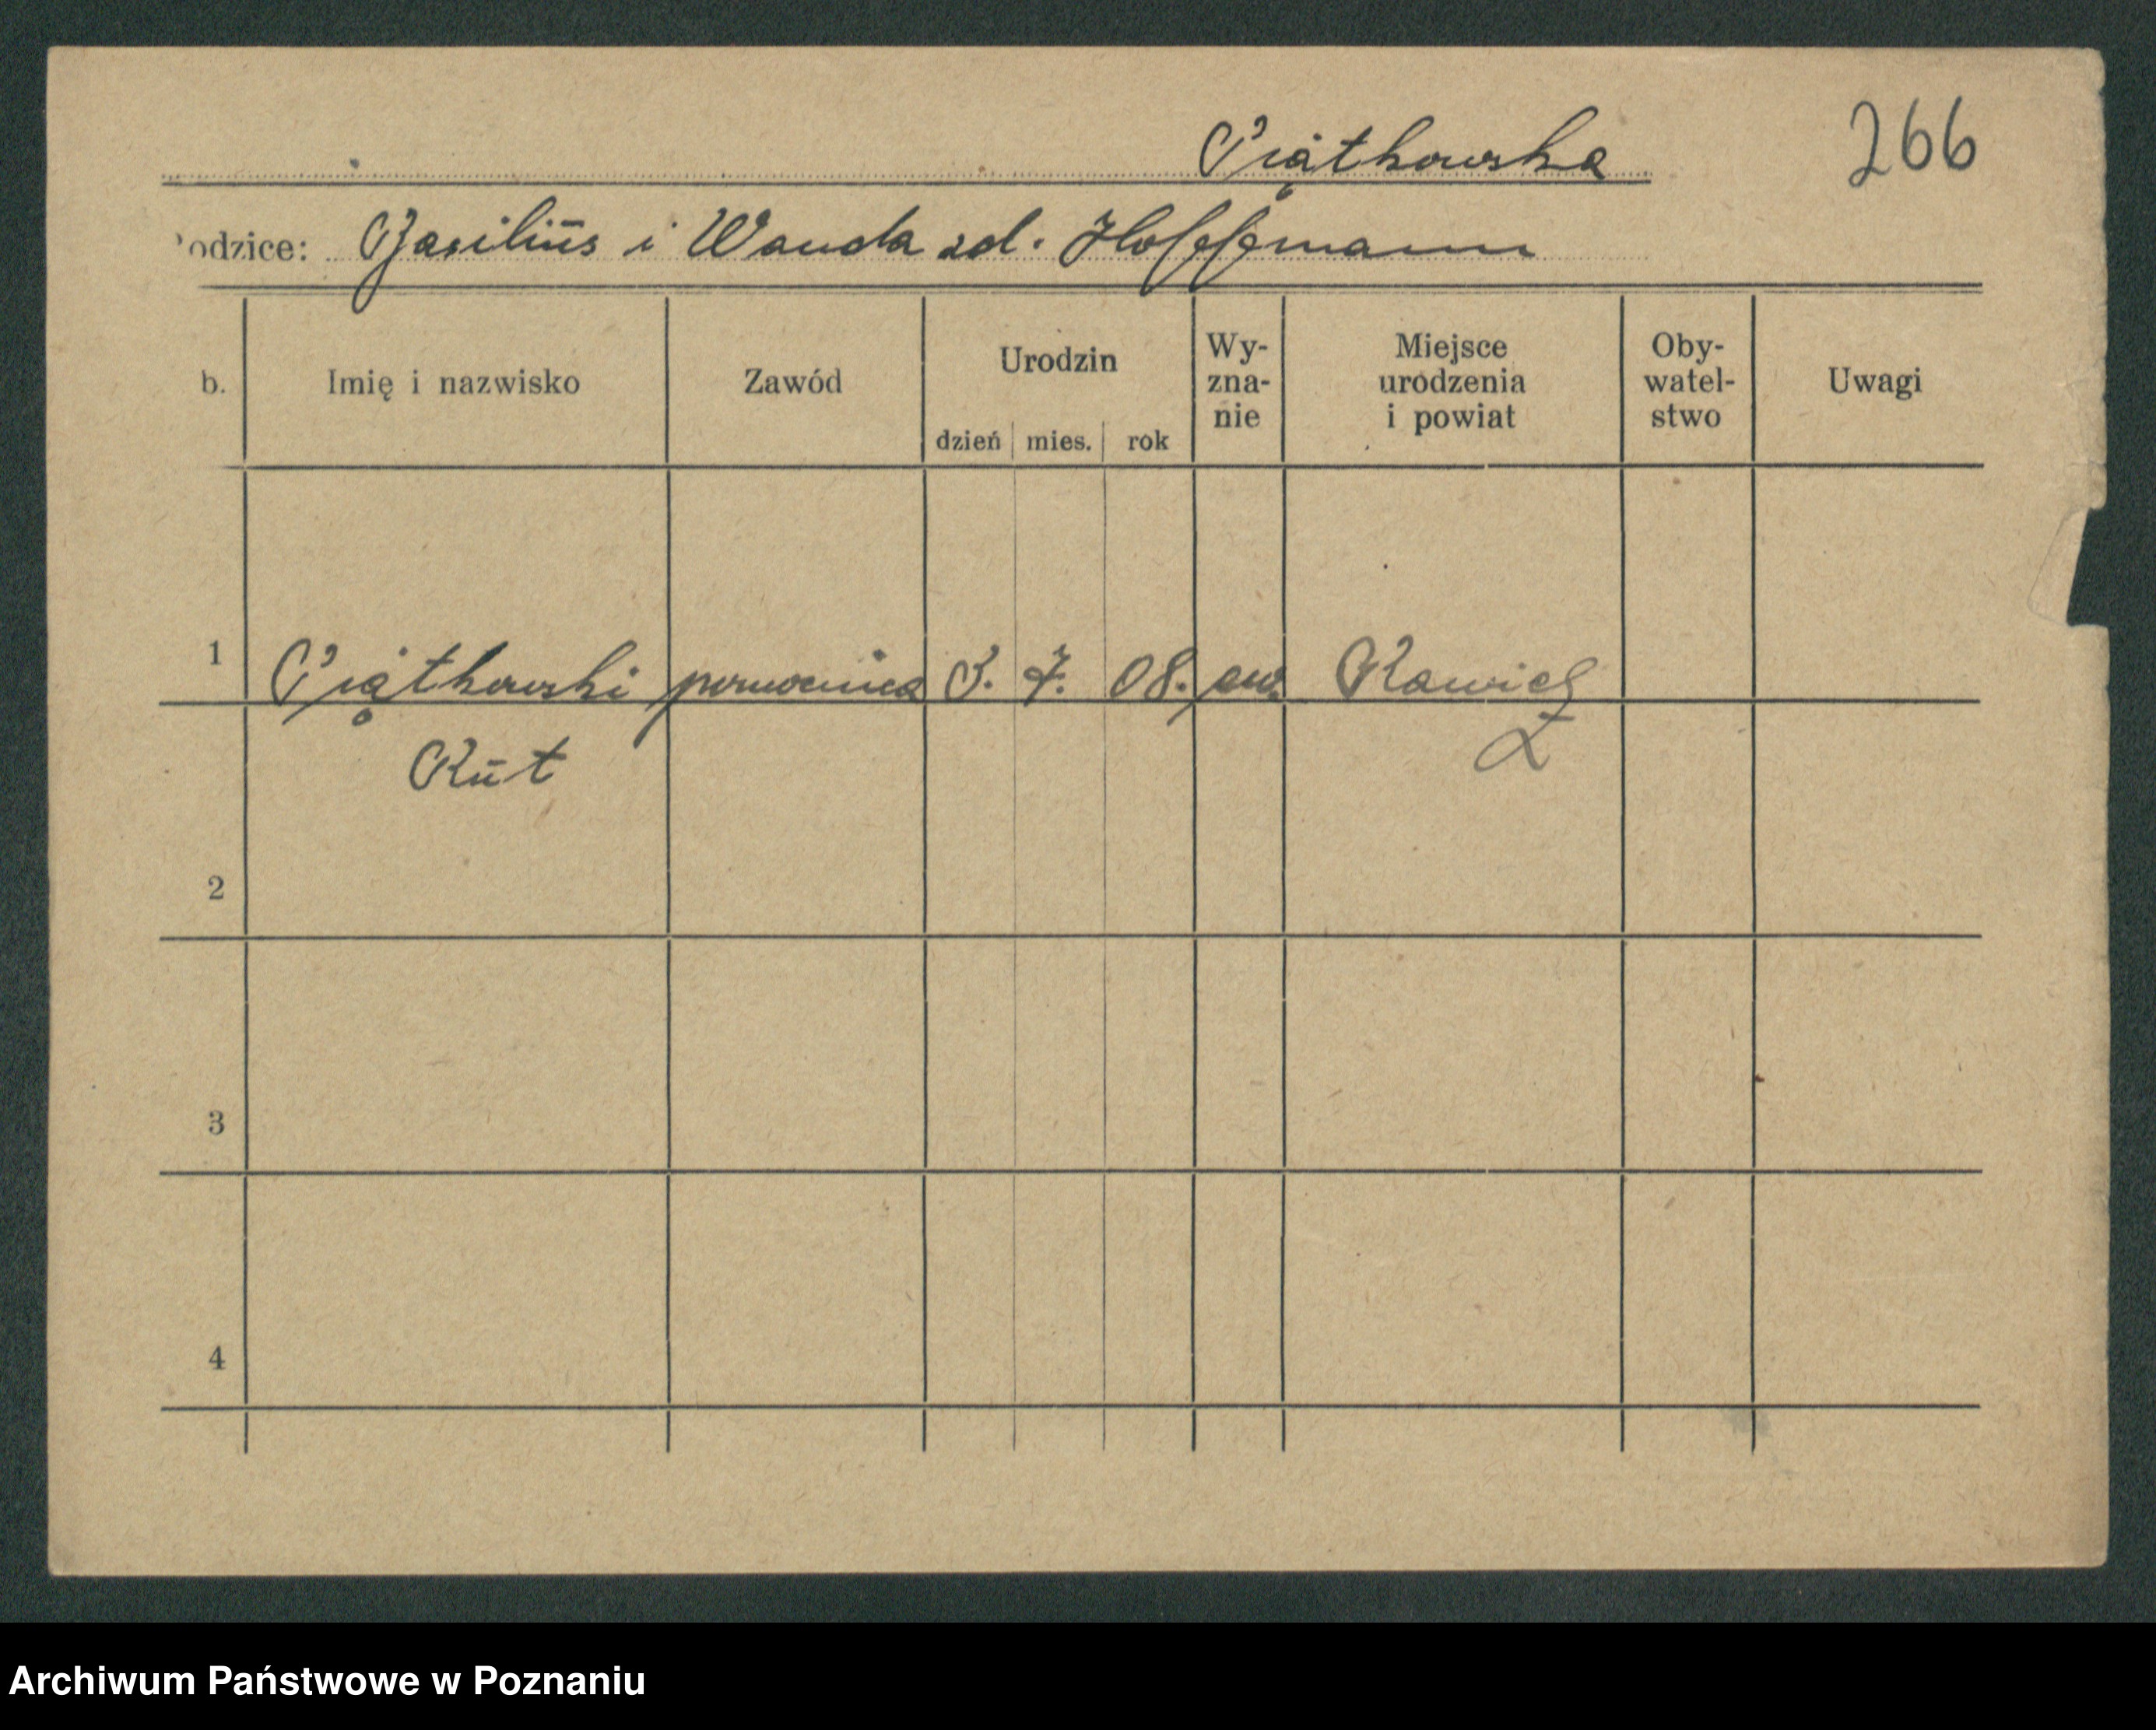 Piątkowska 266
odzice: Basiliūs i Wanda zd. Hoffmann
b. Imię i nazwisko Zawód Urodzin dzień mies. rok Wy-zna-nie Miejsce urodzenia i powiat Oby-watel-stwo Uwagi
1 Piątkowski pomocnica 3. 7. 08. ew. Rawicz
Rūt
2
3
4
Archiwum Państwowe w Poznaniu